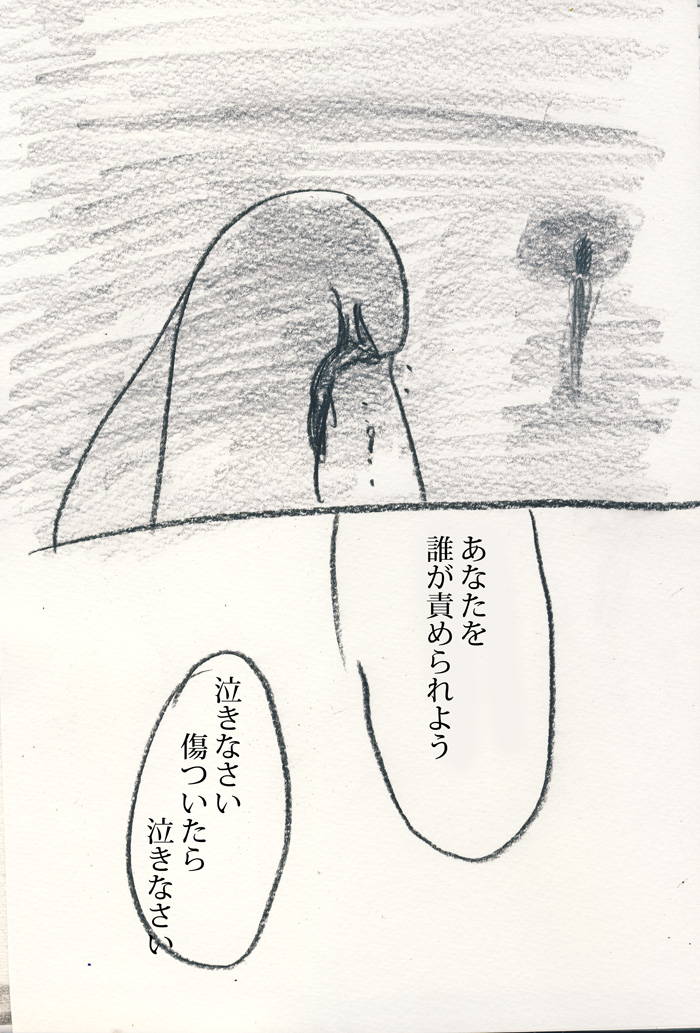 あなたを
誰が責められよう
泣きなさい
傷ついたら
泣きなさい